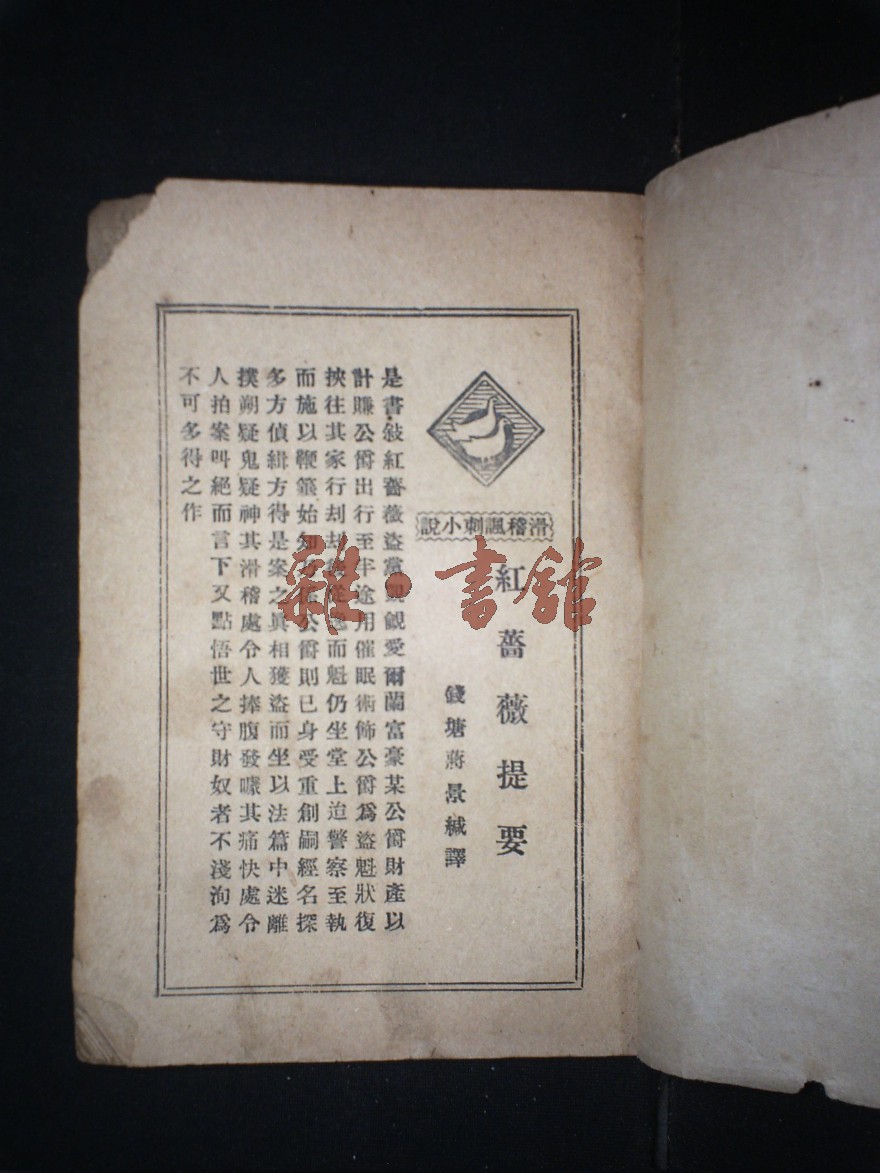 滑稽諷刺小說
紅薔薇提要
錢塘蔣景緘譯
是書敍紅薔薇盜黨覬覦愛爾蘭富豪某公爵財產以
計賺公爵出行至半途用催眠術飾公爵爲盜魁狀復
挾往其家行刦刦而魁仍坐堂上迨警察至執
而施以鞭箠始知公爵則已身受重創嗣經名探
多方偵緝方得是案之眞相獲盜而坐以法篇中迷離
撲朔疑鬼疑神其滑稽處令人捧腹發噱其痛快處令
人拍案叫絕而言下又點悟世之守財奴者不淺洵爲
不可多得之作
雜·書館